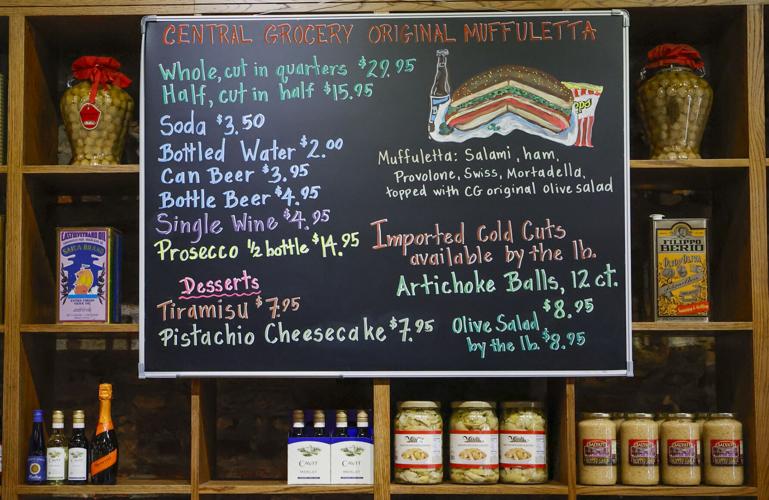 CENTRAL GROCERY ORIGINAL MUFFULETTA
Whole, cut in quarters $29.95
Half, cut in half $15.95
Soda $3.50
Bottled Water $2.00
Can Beer $3.95
Bottle Beer $4.95
Single Wine $4.95
Prosecco 1/2 bottle $14.95
Desserts
Tiramisu $7.95
Pistachio Cheesecake $7.95
Muffuletta: Salami, ham,
Provolone, Swiss, Mortadella,
topped with CG original olive salad
Imported Cold Cuts
available by the lb.
Artichoke Balls, 12 ct.
$8.95
Olive Salad
by the lb. $8.95
FILIPPO
BERIO
CAVIT
CAVIT